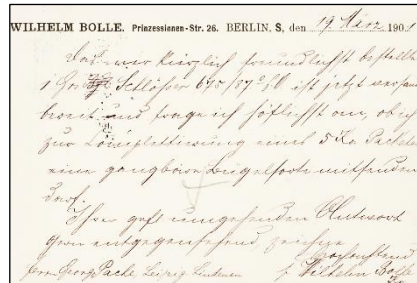 WILHELM BOLLE. Prinzessinnen-Str. 26. BERLIN, S, den 19 März 1901
Das mir kürzlich freundlichst bestellte
1 Schlösser 675/87 ist jetzt versand
bereit und frage ich höflichst an, ob ich
zur Complettierung eines 5 Ko Packetes
eine gangbare Bügelsorte mitsenden
darf.
Ihrer gefl umgehenden Antwort
gern entgegensehend, zeichne
Hochachtend
Herrn Georg Leipzig Wilhelm Bolle